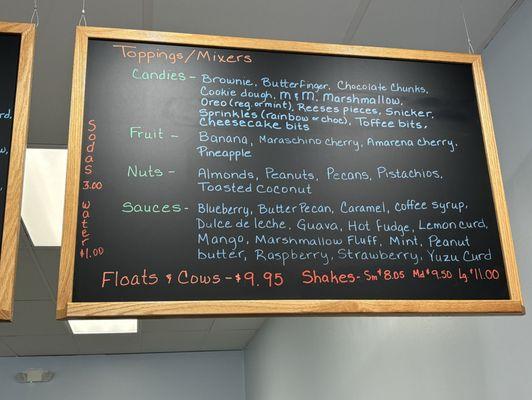 Toppings/Mixers
Candies - Brownie, Butterfinger, Chocolate Chunks,
Cookie dough, M & M, Marshmallow,
Oreo (reg. or mint), Reeses pieces, Snicker,
Sprinkles (rainbow or choc), Toffee bits,
Cheesecake bits
Fruit - Banana, Maraschino cherry, Amarena cherry,
Pineapple
Nuts - Almonds, Peanuts, Pecans, Pistachios,
Toasted Coconut
Sauces - Blueberry, Butter Pecan, Caramel, coffee syrup,
Dulce de leche, Guava, Hot Fudge, Lemon curd,
Mango, Marshmallow Fluff, Mint, Peanut
butter, Raspberry, Strawberry, Yuzu Curd
Sodas 3.00
water $1.00
Floats & Cows - $9.95 Shakes - Sm $8.05 Md $9.50 Lg $11.00